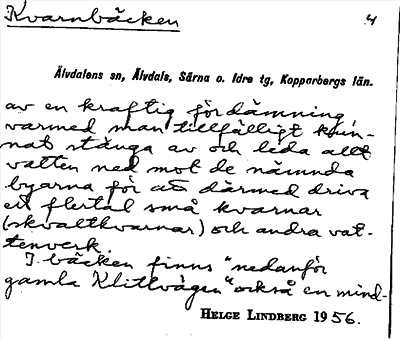 Kvarnbäcken 4
Älvdalens sn, Älvdals, Särna o. Idre tg, Kopparbergs län.
av en kraftig fördämning
varmed man tillfälligt kun-
nat stänga av och leda allt
vatten ned mot de nämnda
byarna för att därmed driva
ett flertal små kvarnar
(skvaltkvarnar) och andra vat-
tenverk.
I bäcken finns "nedanför
gamla Klittvägen" också en mind-
HELGE LINDBERG 1956.